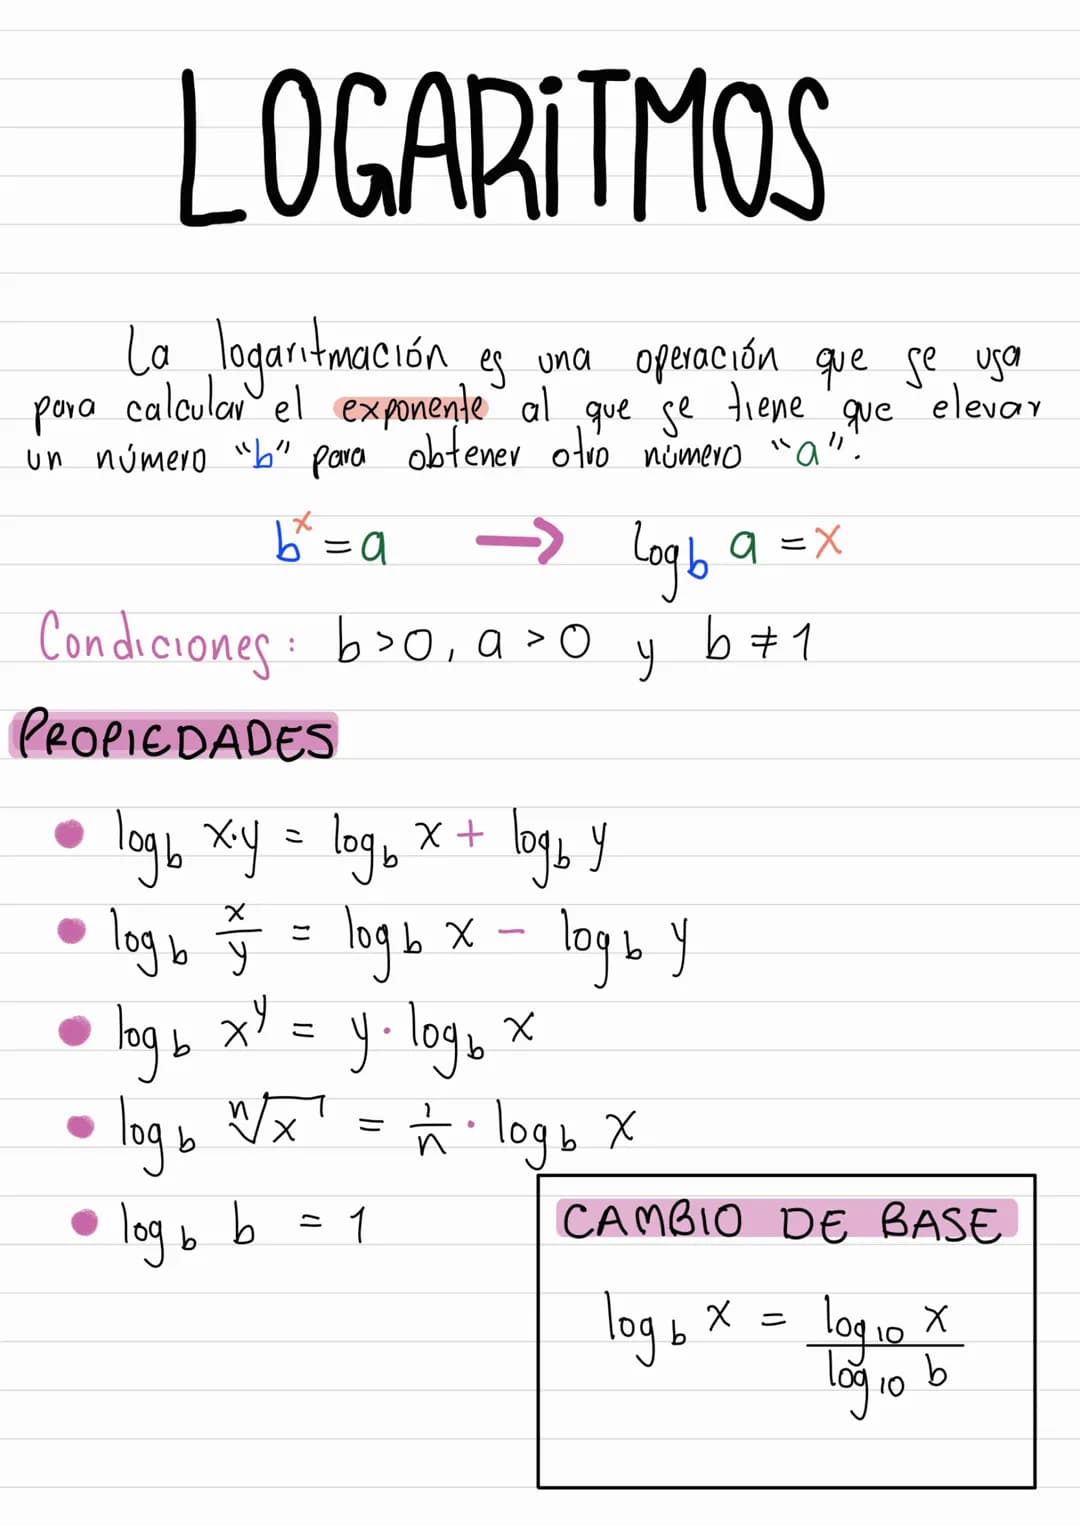 LOGARiTMOS
La logaritmación es una operación que se usa
para calcular el exponente al que se tiene que elevar
un número "b" para obtener otro número "a".
bˣ = a → Log_b a = x
Condiciones: b>0, a>0 y b≠1
PROPIEDADES
• log_b x·y = log_b x + log_b y
• log_b x/y = log_b x - log_b y
• log_b x^y = y · log_b x
• log_b ⁿ√x = 1/n · log_b x
• log_b b = 1
CAMBIO DE BASE
log_b x = log₁₀ x / log₁₀ b